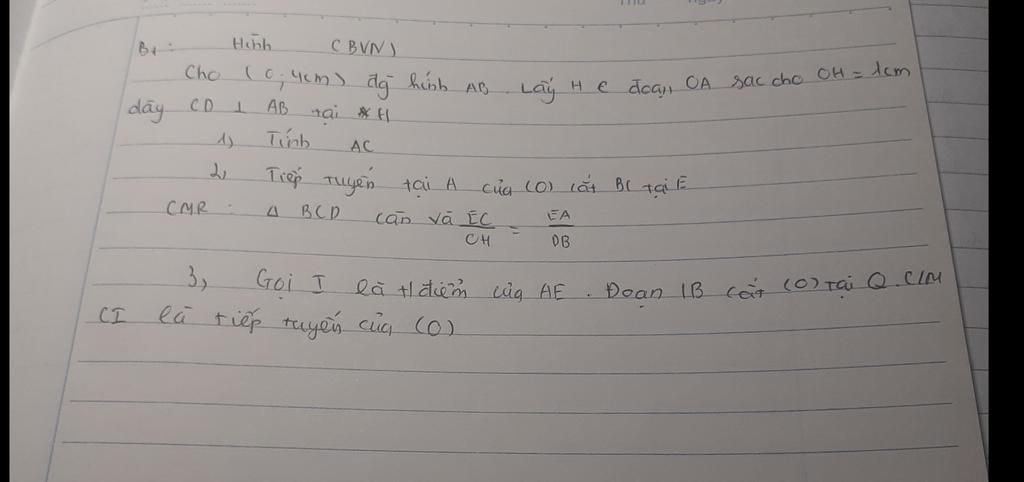 B1: Hình (BVN)
Cho (O; 4cm) đg kính AB. Lấy H ∈ đoạn OA sao cho OH = 1cm
dây CD ⊥ AB tại H
1) Tính AC
2, Tiếp tuyến tại A của (O) cắt BC tại E
CMR: Δ BCD cân và EC/CH = EA/DB
3, Gọi I là tđiểm của AE. Đoạn IB cắt (O) tại Q. C/M
CI là tiếp tuyến của (O)